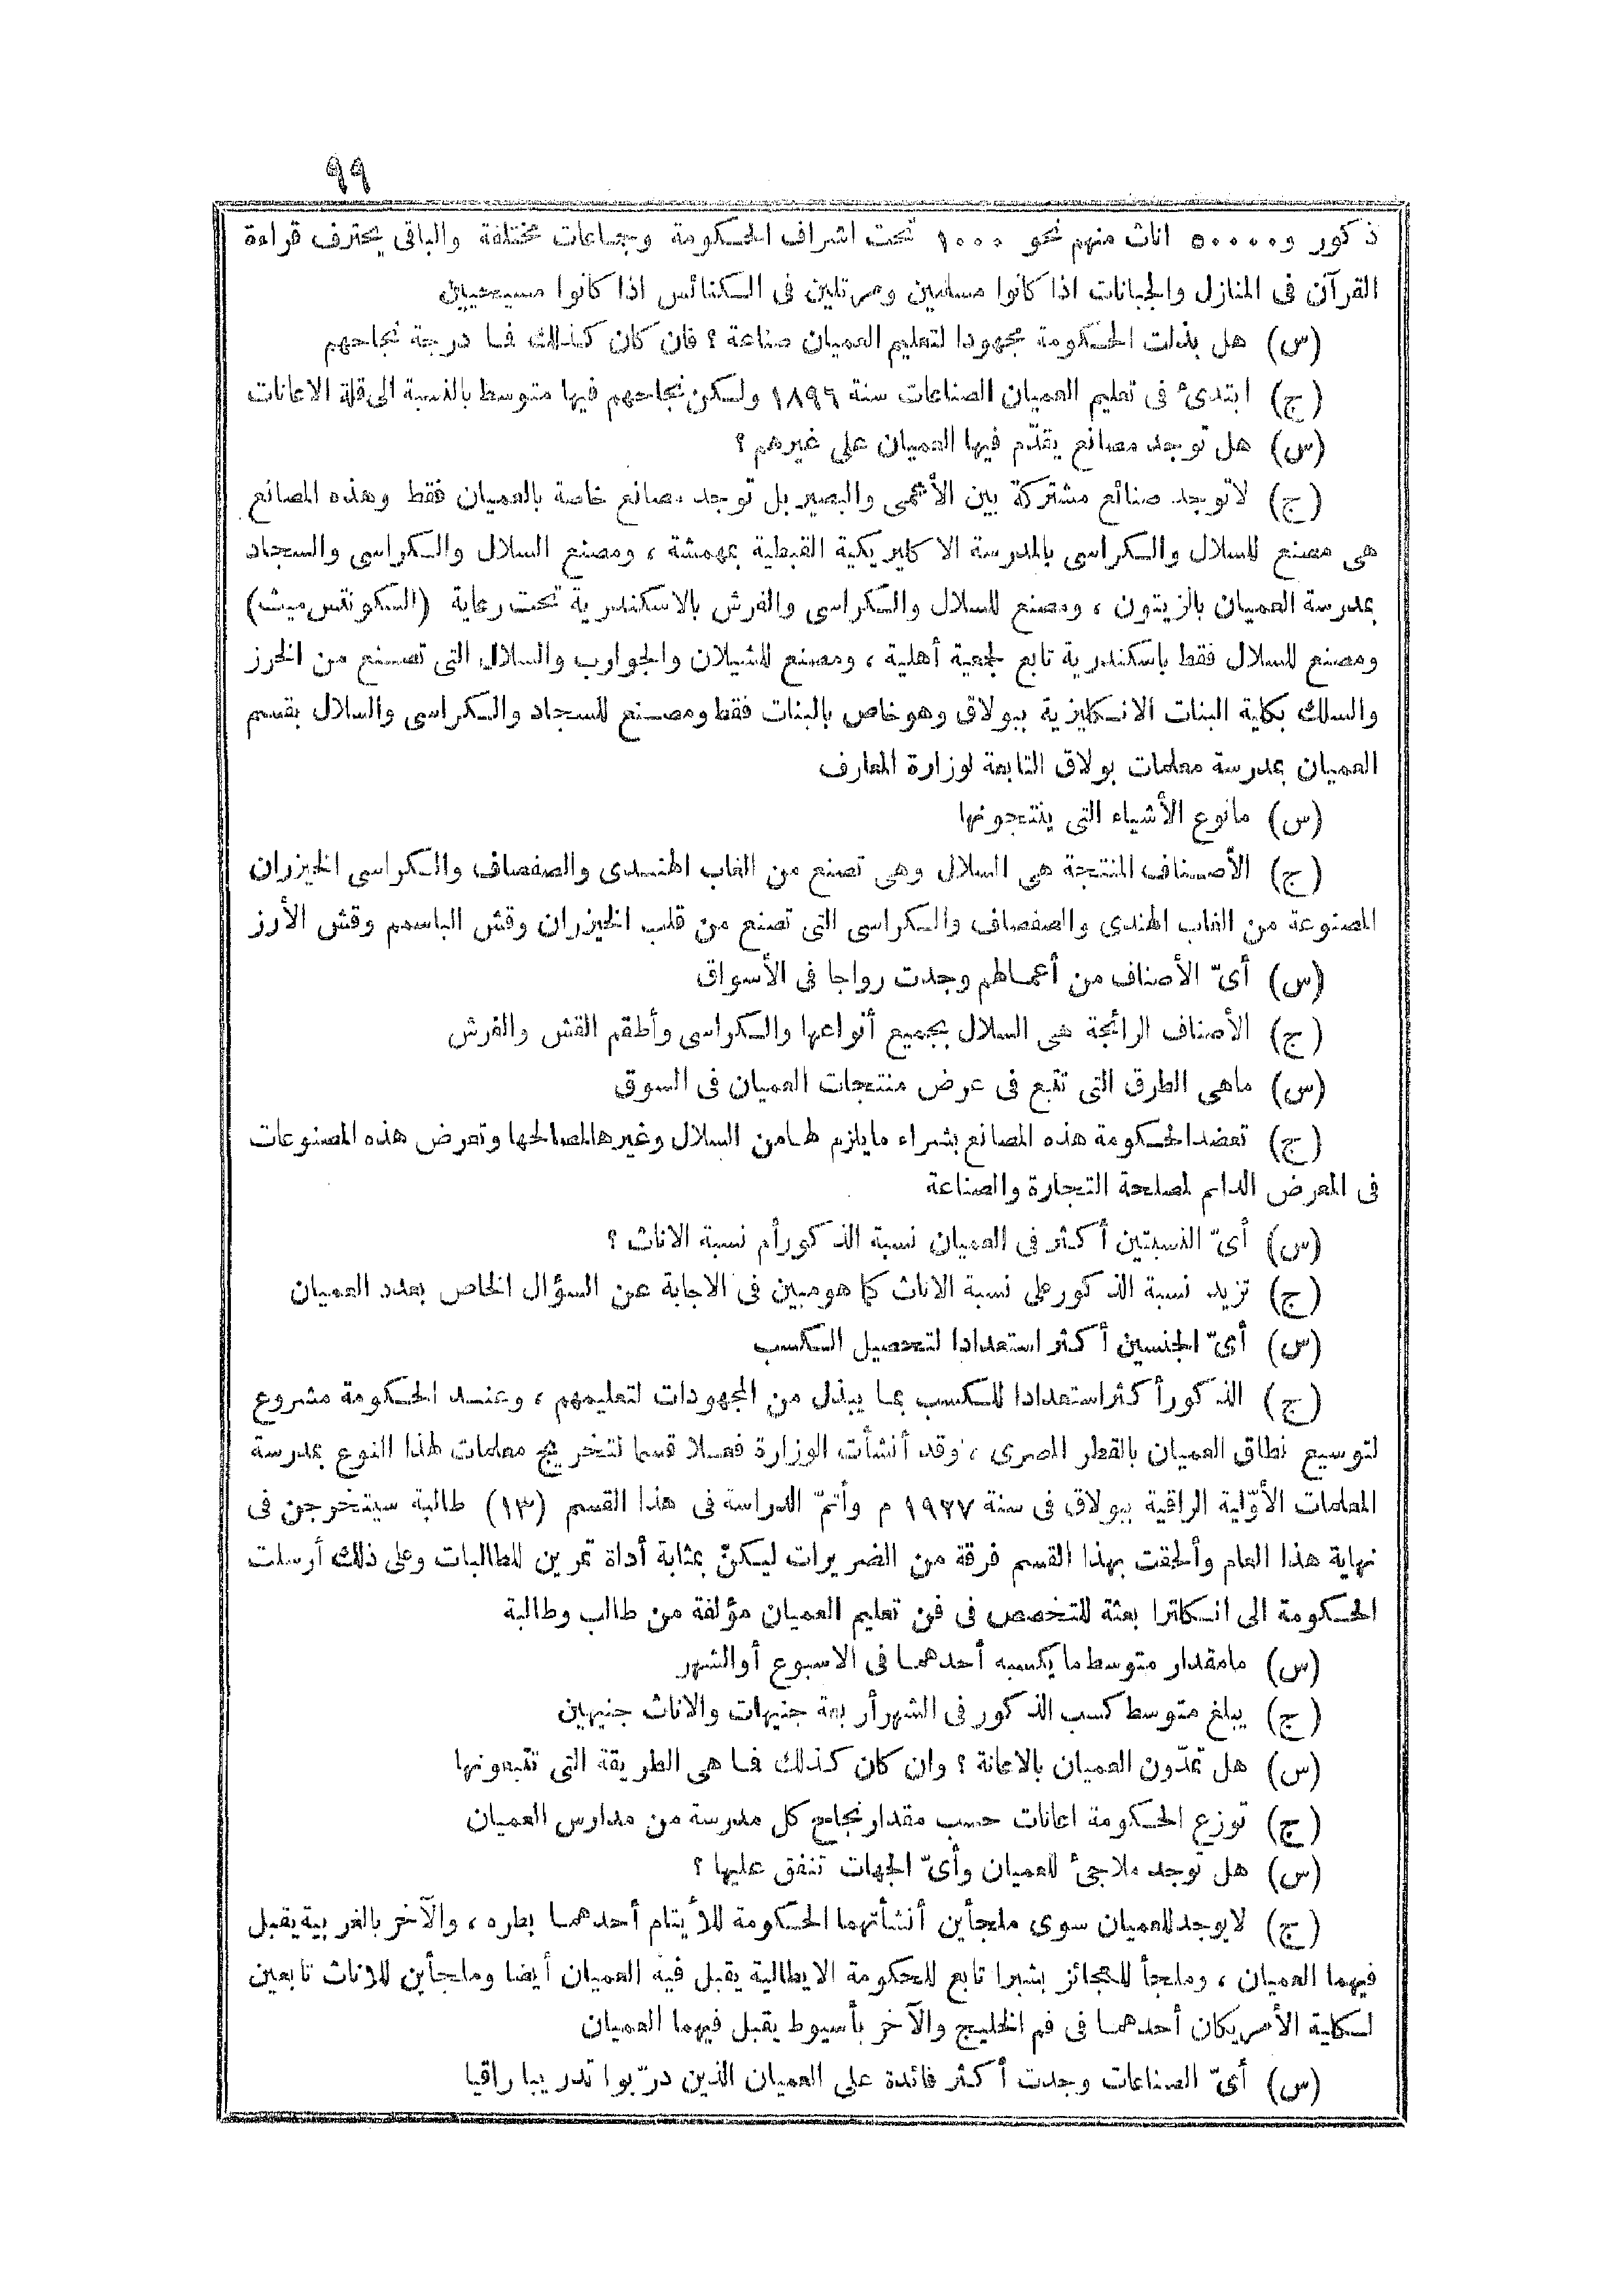 ٩٩
ذكور و٥٠٠٠٠ اناث منهم نحو ١٠٠٠ تحت اشراف الحكومة وجماعات مختلفة والباقى يحترف قراءة
القرآن فى المنازل والجبانات اذا كانوا مسلمين ومرتلين فى الكنائس اذا كانوا مسيحيين
(س) هل بذلت الحكومة مجهودا لتعليم العميان صناعة ؟ فان كان كذلك فما درجة نجاحهم
(ج) ابتدئ فى تعليم العميان الصناعات سنة ١٨٩٦ ولكن نجاحهم فيها متوسط بالنسبة الى قلة الاعانات
(س) هل توجد مصانع يقدّم فيها العميان على غيرهم ؟
(ج) لاتوجد صنائع مشتركة بين الأعمى والبصير بل توجد مصانع خاصة بالعميان فقط وهذه المصانع
هى مصنع للسلال والكراسى بالمدرسة الاكليريكية القبطية بمهمشة ، ومصنع السلال والكراسى والسجاد
بمدرسة العميان بالزيتون ، ومصنع للسلال والكراسى والفرش بالاسكندرية تحت رعاية (الكونتس ميث)
ومصنع للسلال فقط باسكندرية تابع لجمعية أهلية ، ومصنع للشيلان والجوارب والسلال التى تصنع من الخرز
والسلك بكلية البنات الانكليزية ببولاق وهو خاص بالبنات فقط ومصنع للسجاد والكراسى والسلال بقسم
العميان بمدرسة معلمات بولاق التابعة لوزارة المعارف
(س) مانوع الأشياء التى ينتجونها
(ج) الأصناف المنتجة هى السلال وهى تصنع من الغاب الهندى والصفصاف والكراسى الخيزران
المصنوعة من الغاب الهندى والصفصاف والكراسى التى تصنع من قلب الخيزران وقش الباسمم وقش الأرز
(س) أىّ الأصناف من أعمالهم وجدت رواجا فى الأسواق
(ج) الأصناف الرائجة هى السلال بجميع أنواعها والكراسى وأطقم القش والفرش
(س) ماهى الطرق التى تتبع فى عرض منتجات العميان فى السوق
(ج) تعضد الحكومة هذه المصانع بشراء مايلزم لها من السلال وغيرها لمصالحها وتعرض هذه المصنوعات
فى المعرض الدائم لمصلحة التجارة والصناعة
(س) أىّ النسبتين أكثر فى العميان نسبة الذكور أم نسبة الاناث ؟
(ج) تزيد نسبة الذكور على نسبة الاناث كما هو مبين فى الاجابة عن السؤال الخاص بعدد العميان
(س) أىّ الجنسين أكثر استعدادا لتحصيل الكسب
(ج) الذكور أكثر استعدادا للكسب بما يبذل من المجهودات لتعليمهم ، وعند الحكومة مشروع
لتوسيع نطاق العميان بالقطر المصرى ، وقد أنشأت الوزارة فعلا قسما لتخريج معلمات لهذا النوع بمدرسة
المعلمات الأوّلية الراقية ببولاق فى سنة ١٩٢٧ م وأتمّ الدراسة فى هذا القسم (١٣) طالبة سيتخرجن فى
نهاية هذا العام وألحقت بهذا القسم فرقة من الضريرات ليكنّ بمثابة أداة تمرين للطالبات وعلى ذلك أرسلت
الحكومة الى انكلترا بعثة للتخصص فى فن تعليم العميان مؤلفة من طالب وطالبة
(س) مامقدار متوسط ما يكسبه أحدهما فى الاسبوع أوالشهر
(ج) يبلغ متوسط كسب الذكور فى الشهر أربعة جنيهات والاناث جنيهين
(س) هل تمدّون العميان بالاعانة ؟ وان كان كذلك فما هى الطريقة التى تتبعونها
(ج) توزع الحكومة اعانات حسب مقدار نجاح كل مدرسة من مدارس العميان
(س) هل توجد ملاجئ للعميان وأىّ الجهات تنفق عليها ؟
(ج) لايوجد للعميان سوى ملجأين أنشأتهما الحكومة للأيتام أحدهما بطره ، والآخر بالغربية يقبل
فيهما العميان ، وملجأ للعجائز بشبرا تابع للحكومة الايطالية يقبل فيه العميان أيضا وملجأين للاناث تابعين
لكلية الأمريكان أحدهما فى فم الخليج والآخر بأسيوط يقبل فيهما العميان
(س) أىّ الصناعات وجدت أكثر فائدة على العميان الذين درّبوا تدريبا راقيا